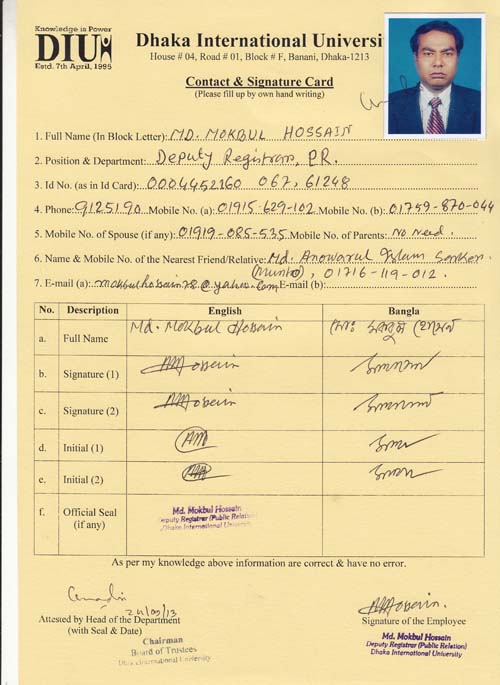 Knowledge is Power
DIU
Estd. 7th April, 1995
Dhaka International Universi
House # 04, Road # 01, Block # F, Banani, Dhaka-1213
Contact & Signature Card
(Please fill up by own hand writing)
1. Full Name (In Block Letter): MD. MOKBUL HOSSAIN
2. Position & Department: Deputy Registrar, PR.
3. Id No. (as in Id Card): 0004452160 067, 61248
4. Phone: 9125190 Mobile No. (a): 01915-629-102 Mobile No. (b): 01749-870-044
5. Mobile No. of Spouse (if any): 01919-085-535 Mobile No. of Parents: No need.
6. Name & Mobile No. of the Nearest Friend/Relative: Md. Anowarul Islam Sarker.
(Munto), 01716-119-012.
7. E-mail (a): mokbulhossain78@yahoo.com E-mail (b):
No. Description English Bangla
a. Full Name Md. Mokbul Hossain মোঃ মকবুল হোসেন
b. Signature (1) Hossain
c. Signature (2) Hossain
d. Initial (1)
e. Initial (2)
f. Official Seal (if any) Md. Mokbul Hossain
Deputy Registrar (Public Relation)
Dhaka International University
As per my knowledge above information are correct & have no error.
24/03/13
Attested by Head of the Department
(with Seal & Date)
Chairman
Board of Trustees
Dhaka International University
Hossain.
Signature of the Employee
Md. Mokbul Hossain
Deputy Registrar (Public Relation)
Dhaka International University